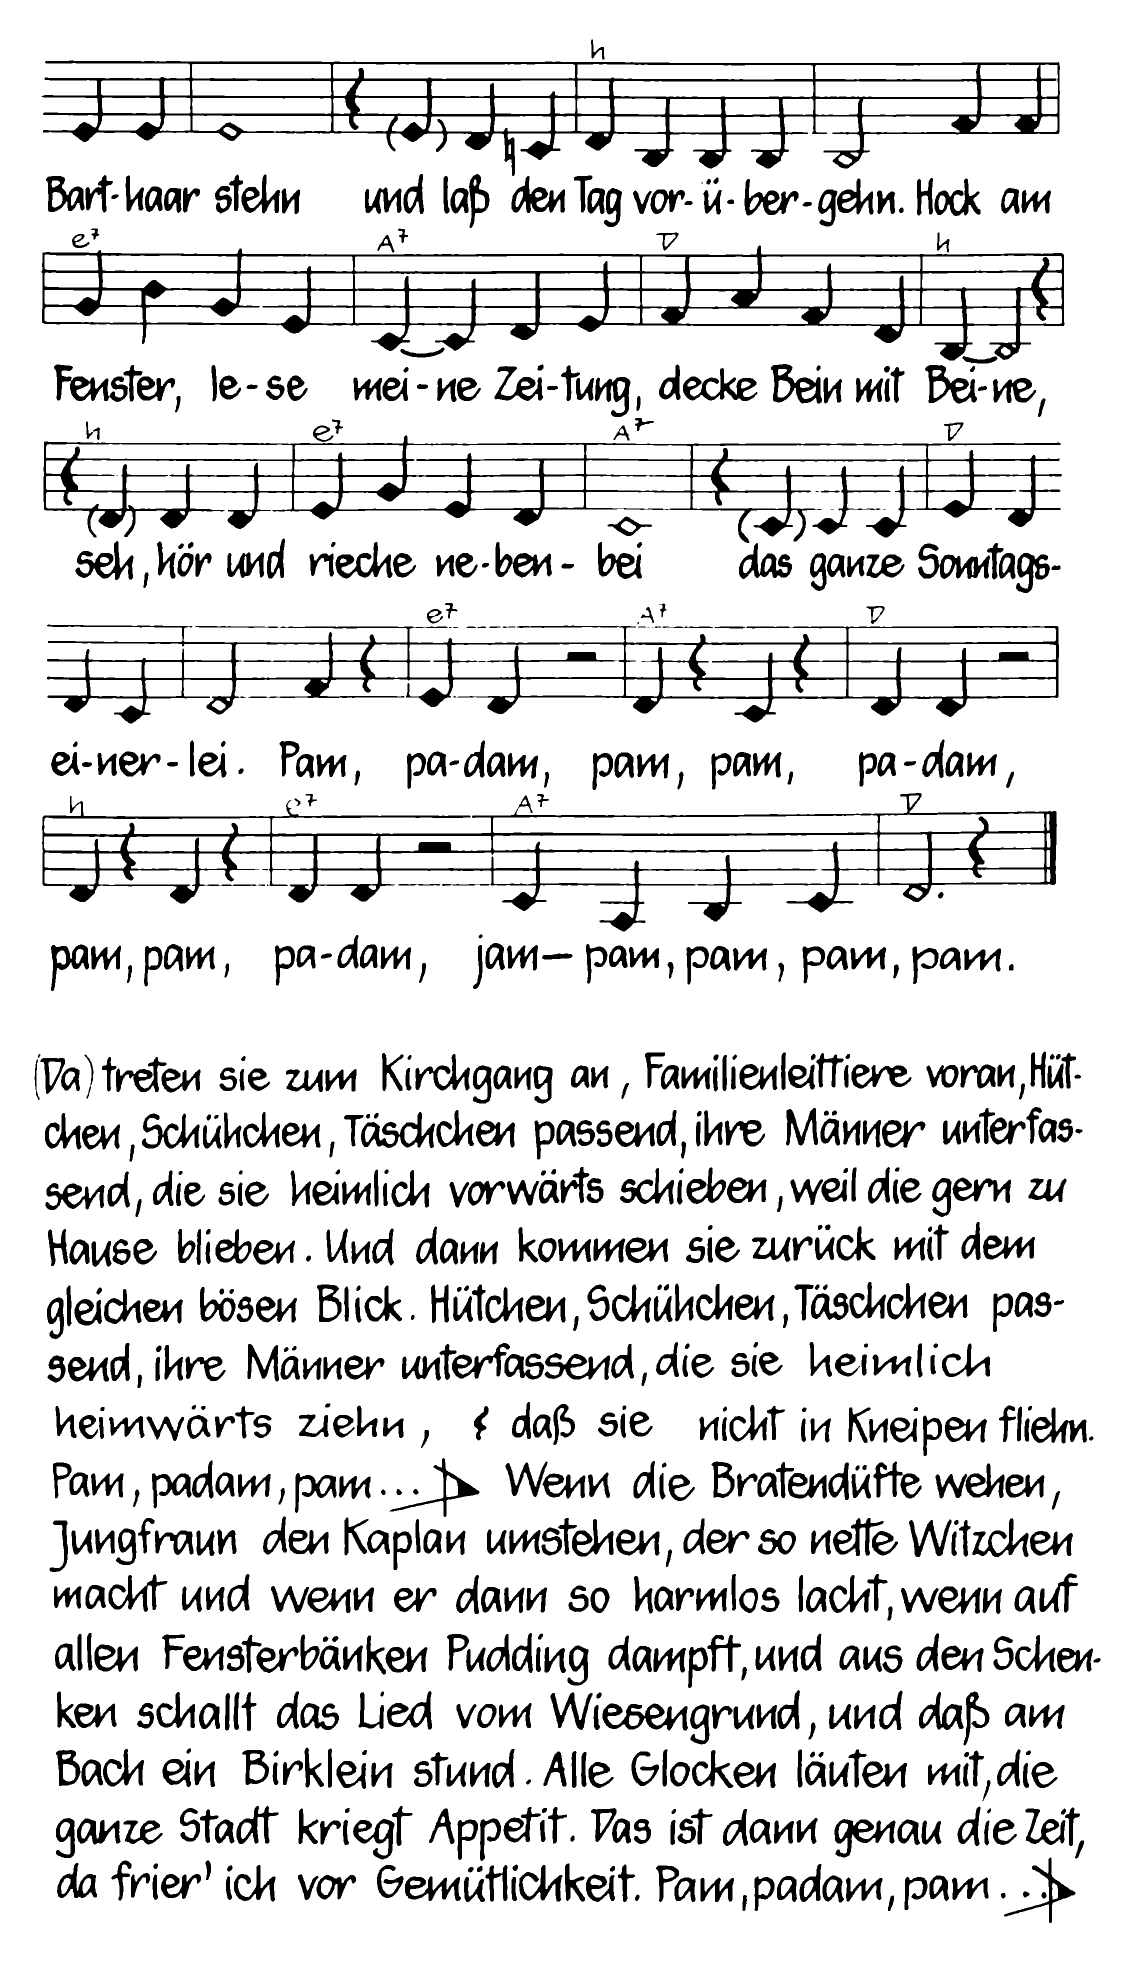 h
Bart-haar stehn und laß den Tag vor-ü-ber-gehn. Hock am
e7 A7 D h
Fenster, le-se mei-ne Zei-tung, decke Bein mit Bei-ne,
h e7 A7 D
seh, hör und rieche ne-ben-bei das ganze Sonntags-
e7 A7 D
ei-ner-lei. Pam, pa-dam, pam, pam, pa-dam,
h e7 A7 D
pam, pam, pa-dam, jam— pam, pam, pam, pam.
(Da) treten sie zum Kirchgang an, Familienleittiere voran, Hüt-
chen, Schühchen, Täschchen passend, ihre Männer unterfas-
send, die sie heimlich vorwärts schieben, weil die gern zu
Hause blieben. Und dann kommen sie zurück mit dem
gleichen bösen Blick. Hütchen, Schühchen, Täschchen pas-
send, ihre Männer unterfassend, die sie heimlich
heimwärts ziehn, & daß sie nicht in Kneipen fliehn.
Pam, padam, pam... Wenn die Bratendüfte wehen,
Jungfraun den Kaplan umstehen, der so nette Witzchen
macht und wenn er dann so harmlos lacht, wenn auf
allen Fensterbänken Pudding dampft, und aus den Schen-
ken schallt das Lied vom Wiesengrund, und daß am
Bach ein Birklein stund. Alle Glocken läuten mit, die
ganze Stadt kriegt Appetit. Das ist dann genau die Zeit,
da frier' ich vor Gemütlichkeit. Pam, padam, pam...